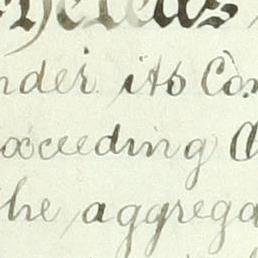 hereas
nder its Con
xceeding O
the aggrega